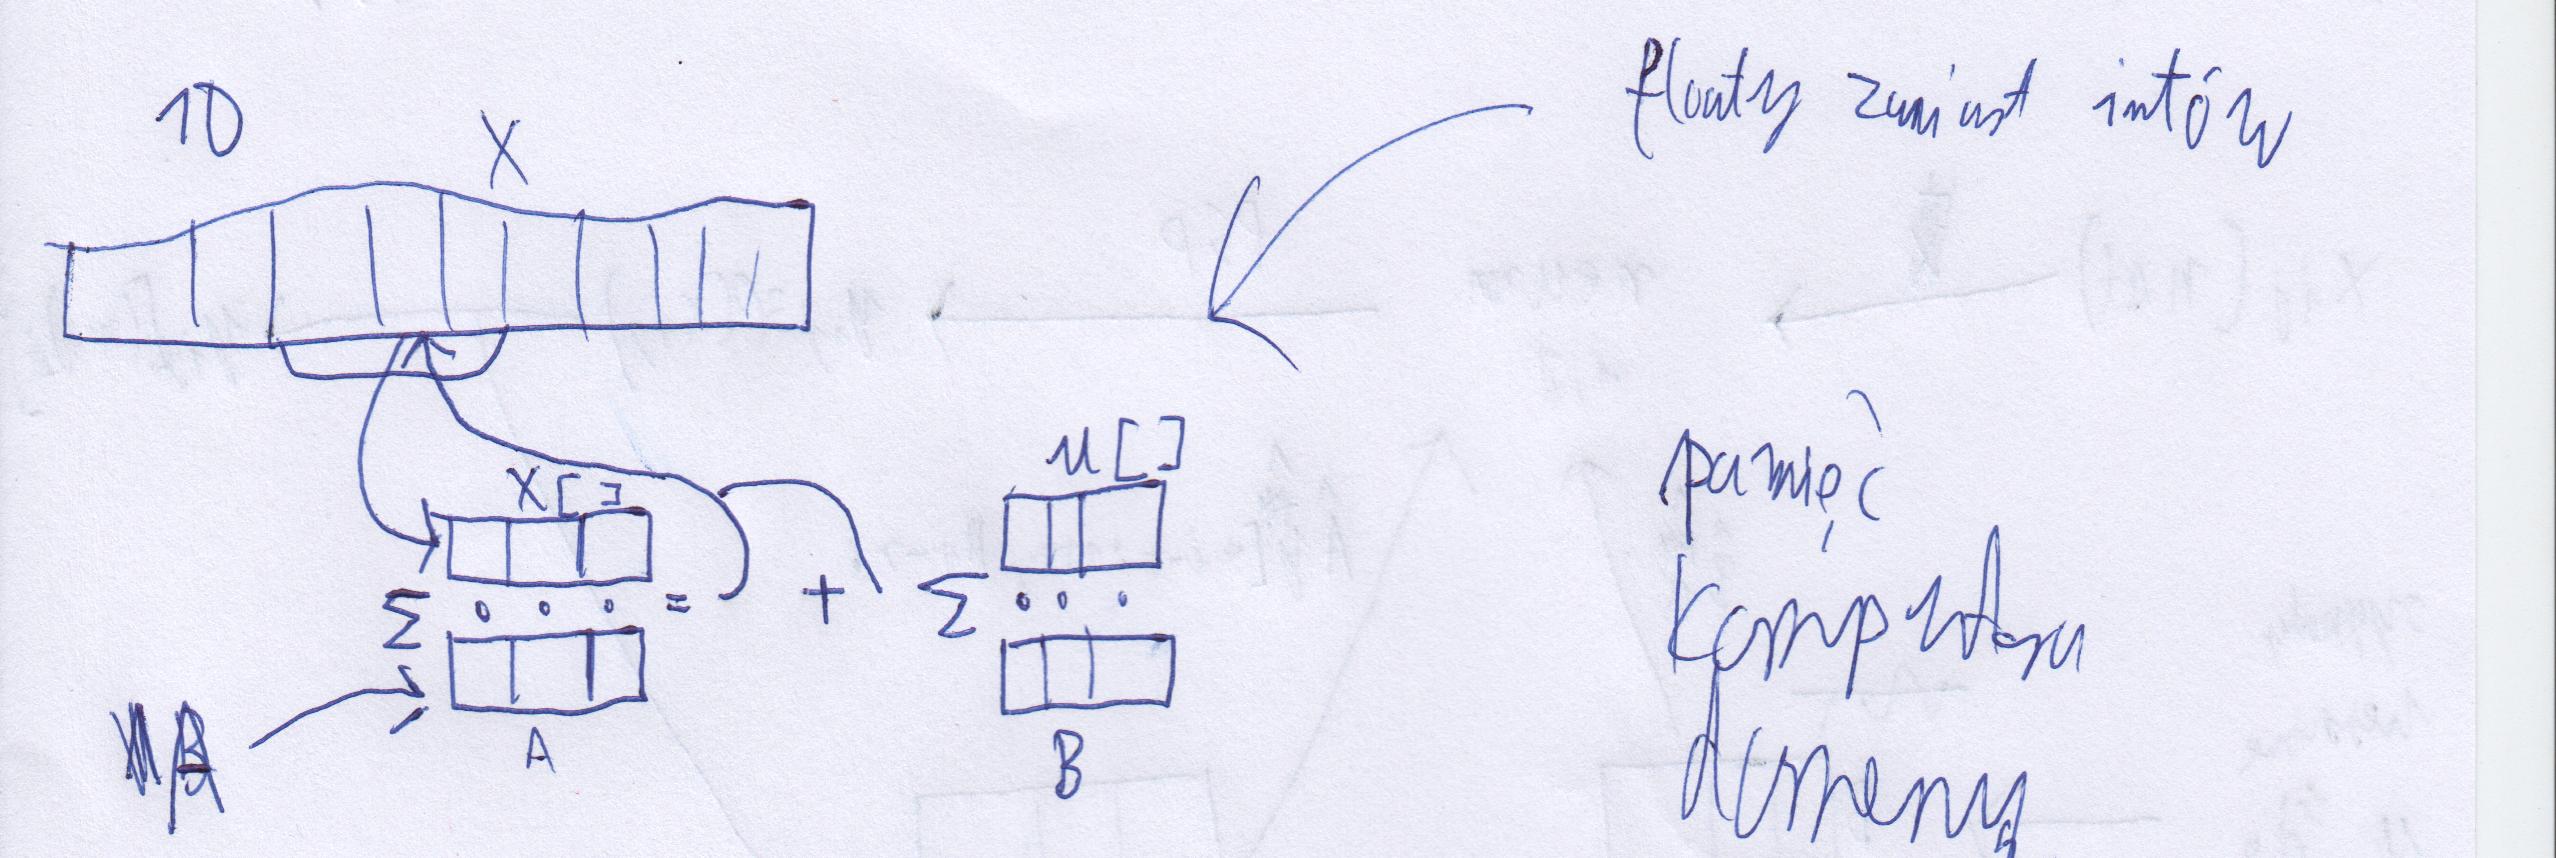 1D
X
floaty zamiast intów
X[]
u[]
Σ ∘ ∘ ∘ = + Σ ∘ ∘ ∘
A
B
pamięć
komputera
domeny